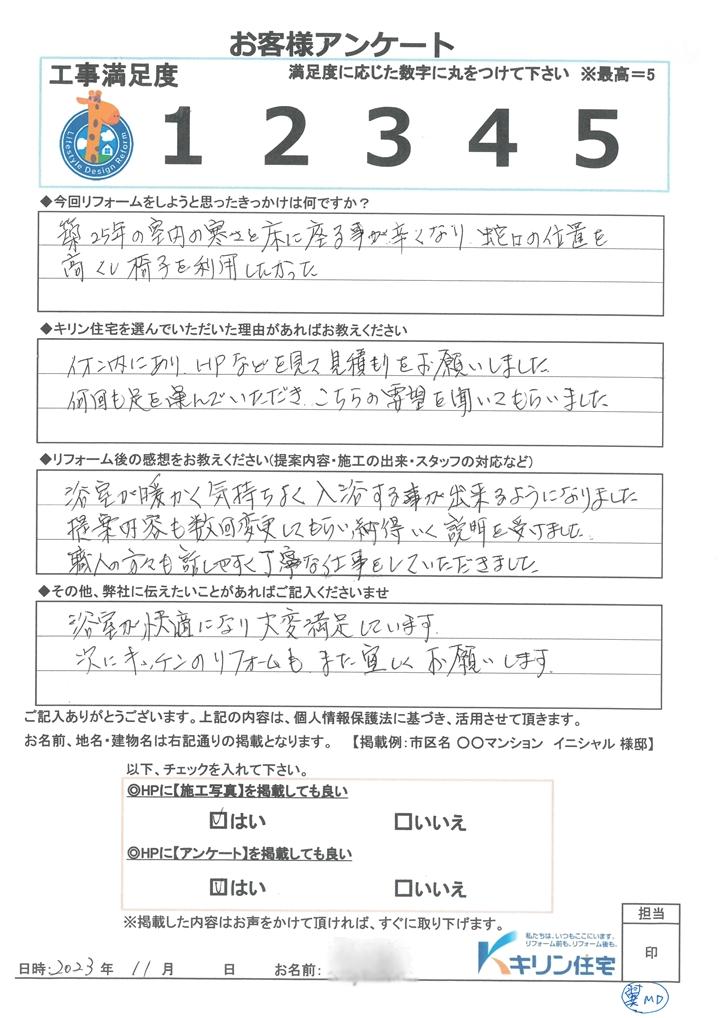 お客様アンケート
工事満足度
満足度に応じた数字に丸をつけて下さい ※最高＝5
Lifestyle Design Reform
1 2 3 4 5
◆今回リフォームをしようと思ったきっかけは何ですか？
築25年の室内の寒さと床に座る事が辛くなり、蛇口の位置を
高くし椅子を利用したかった
◆キリン住宅を選んでいただいた理由があればお教えください
イオン内にあり、HPなどを見て見積もりをお願いしました
何回も足を運んでいただき、こちらの要望を聞いてもらいました
◆リフォーム後の感想をお教えください(提案内容・施工の出来・スタッフの対応など)
浴室が暖かく気持ちよく入浴する事が出来るようになりました
提案内容も数回変更してもらい、納得いく説明を受けました。
職人の方々も話しやすく丁寧な仕事をしていただきました
◆その他、弊社に伝えたいことがあればご記入くださいませ
浴室が快適になり大変満足しています。
次にキッチンのリフォームも、また宜しくお願いします。
ご記入ありがとうございます。上記の内容は、個人情報保護法に基づき、活用させて頂きます。
お名前、地名・建物名は右記通りの掲載となります。 【掲載例：市区名 〇〇マンション イニシャル 様邸】
以下、チェックを入れて下さい。
◎HPに【施工写真】を掲載しても良い
☑はい □いいえ
◎HPに【アンケート】を掲載しても良い
☑はい □いいえ
※掲載した内容はお声をかけて頂ければ、すぐに取り下げます。
担当
印
私たちは、いつもここにいます。
リフォーム前も、リフォーム後も。
キリン住宅
日時：2023年 11月 日 お名前：
MD